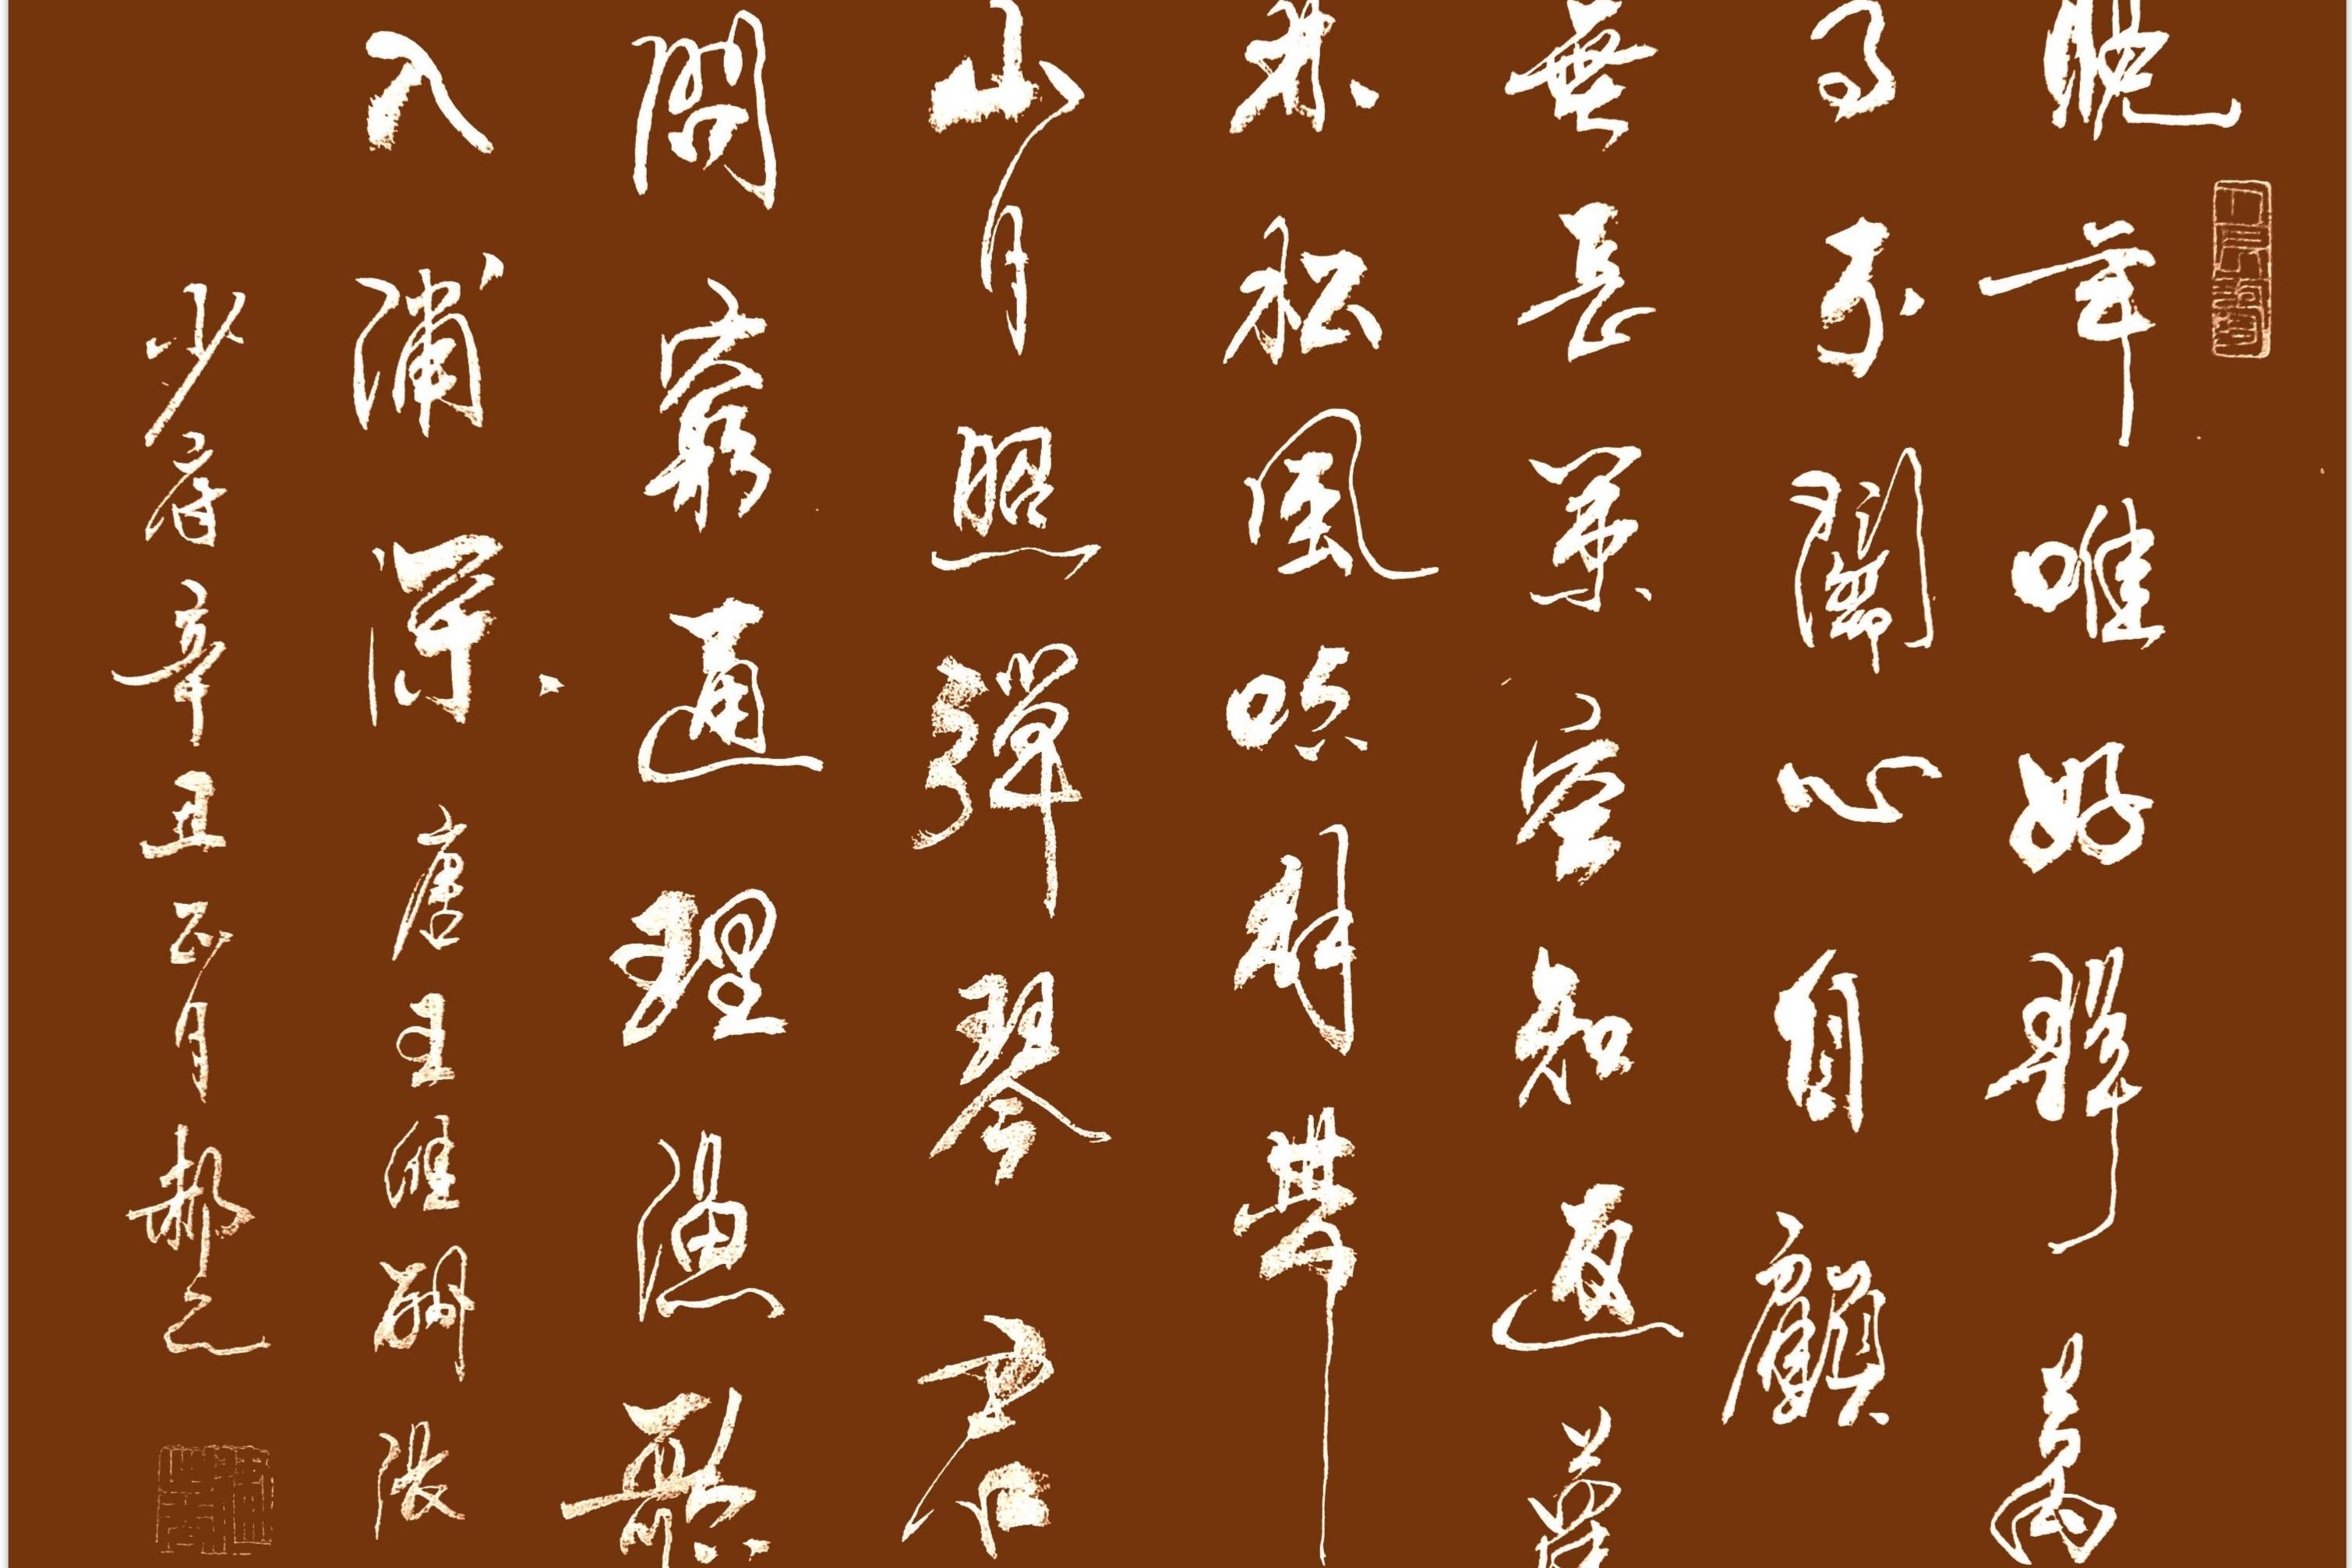 晚年唯好靜萬
事不關心自顧
無長策空知返舊
林松風吹解帶
山月照彈琴君
問窮通理漁歌
入浦深唐王維酬張
少府辛丑正月之